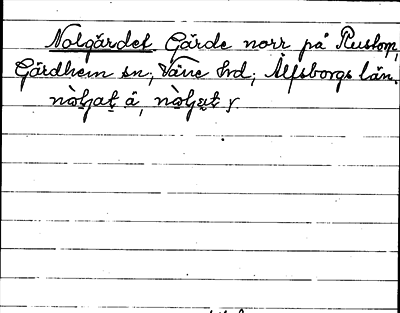 Nolgärdet Gärde norr på Rustorp,
Gärdhem sn; Väne hd; Älfsborgs län.
å, y